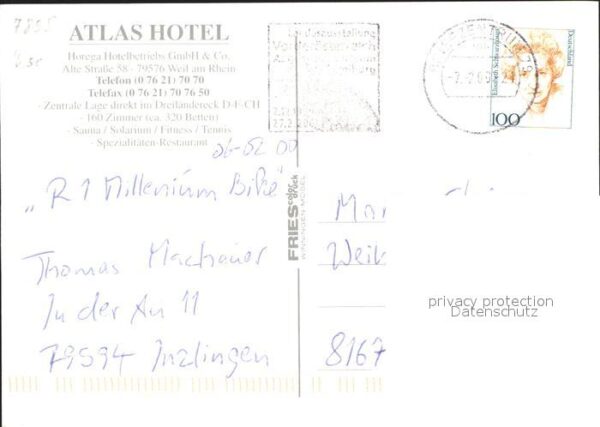 7895
ATLAS HOTEL
Horega Hotelbetriebs GmbH & Co.
Alte Straße 58 - 79576 Weil am Rhein
Telefon (0 76 21) 70 70
Telefax (0 76 21) 70 76 50
- Zentrale Lage direkt im Dreiländereck D-F-CH
- 160 Zimmer (ca. 320 Betten)
- Sauna / Solarium / Fitness / Tennis
- Spezialitäten-Restaurant
06-02 00
„R1 Millenium Bike"
Thomas
In der Au 11
79594 Inzlingen
FRIES color druck
Landesausstellung
Vorderösterreich
Deutschland
Elisabeth Schwarzhaupt
100
Mar
Weik
8167
privacy protection
Datenschutz